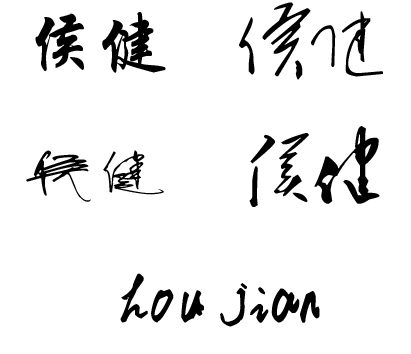 侯健 侯健
侯健 侯健
hou jian